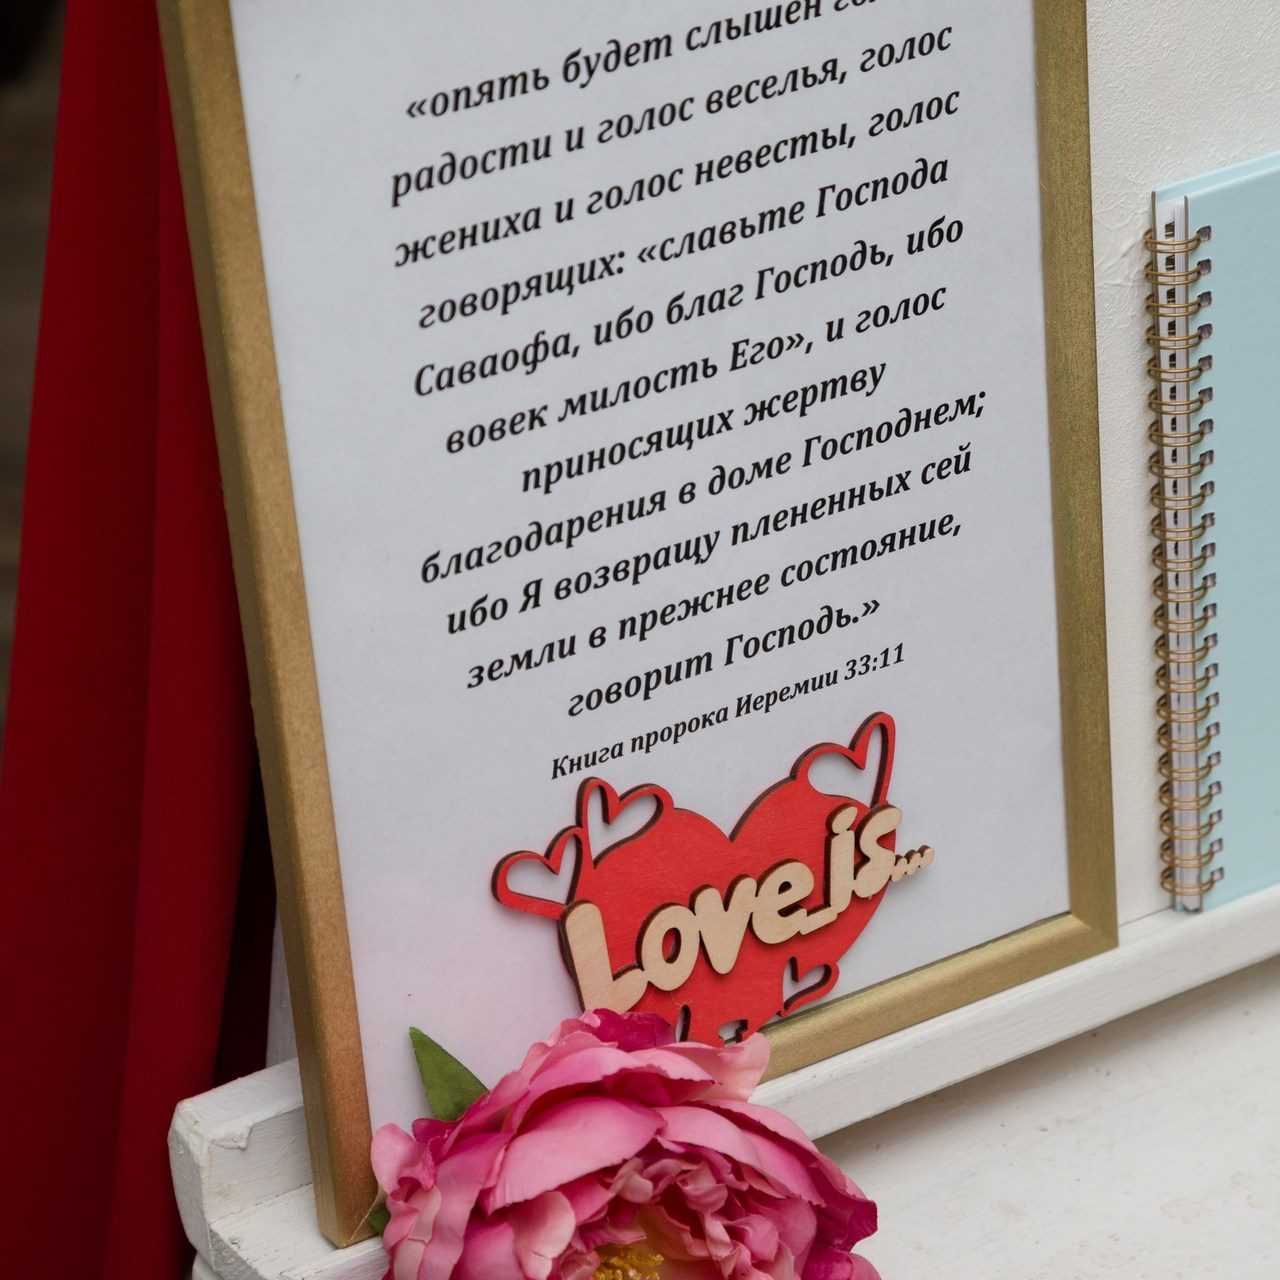 «опять будет слышен
радости и голос веселья, голос
жениха и голос невесты, голос
говорящих: «славьте Господа
Саваофа, ибо благ Господь, ибо
вовек милость Его», и голос
приносящих жертву
благодарения в доме Господнем;
ибо Я возвращу плененных сей
земли в прежнее состояние,
говорит Господь.»
Книга пророка Иеремии 33:11
Love is...